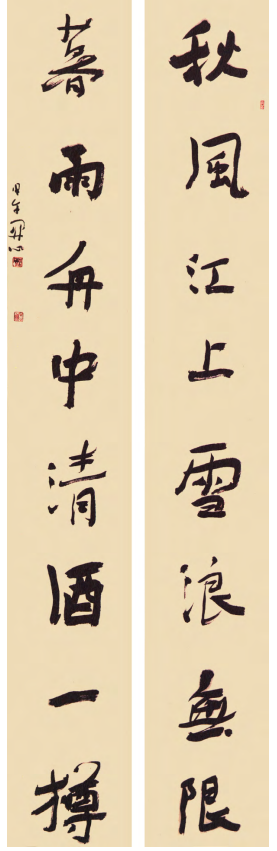 秋風江上雪浪無限
暮雨舟中清酒一樽
甲午